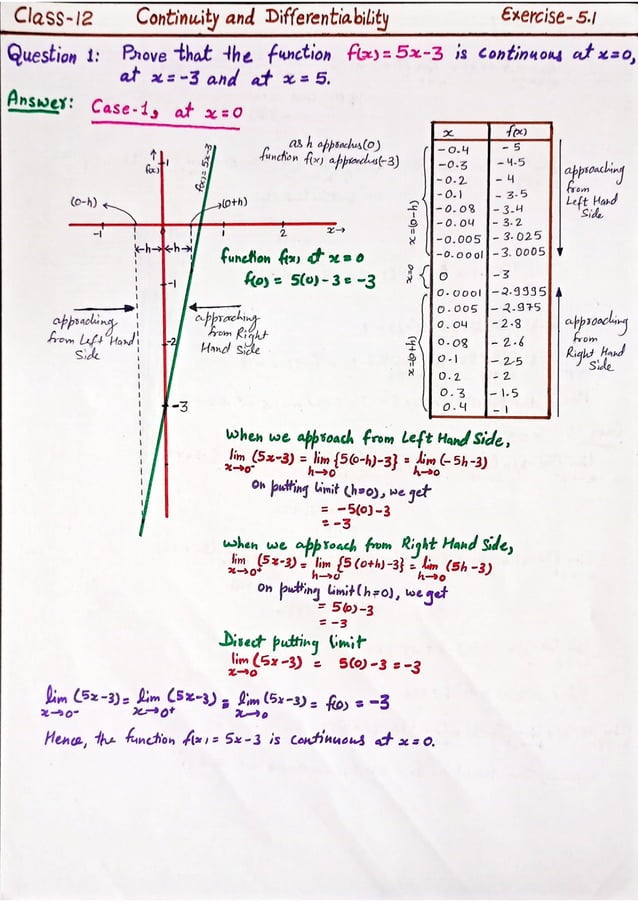 Class-12 Continuity and Differentiability Exercise-5.1
Question 1: Prove that the function f(x)=5x-3 is continuous at x=0,
at x=-3 and at x=5.
Answer: Case-1, at x=0
f(x)
f(x)=5x-3
as h approaches(0)
function f(x) approaches(-3)
(0-h)
(0+h)
-1
1
2
x→
←h→←h→
function f(x) at x=0
f(0) = 5(0)-3 = -3
-1
approaching
from Left Hand
Side
approaching
from Right
Hand Side
-2
-3
x f(x)
-0.4 -5
-0.3 -4.5
-0.2 -4
-0.1 -3.5
-0.08 -3.4
-0.04 -3.2
-0.005 -3.025
-0.0001 -3.0005
0 -3
0.0001 -2.9995
0.005 -2.975
0.04 -2.8
0.08 -2.6
0.1 -2.5
0.2 -2
0.3 -1.5
0.4 -1
x=(0-h)
x=0
x=(0+h)
approaching
from
Left Hand
Side
approaching
from
Right Hand
Side
When we approach from Left Hand Side,
lim (5x-3) = lim {5(0-h)-3} = lim (-5h-3)
x→0⁻ h→0 h→0
on putting limit (h=0), we get
= -5(0)-3
= -3
when we approach from Right Hand Side,
lim (5x-3) = lim {5(0+h)-3} = lim (5h-3)
x→0⁺ h→0 h→0
on putting limit (h=0), we get
= 5(0)-3
= -3
Direct putting limit
lim (5x-3) = 5(0)-3 = -3
x→0
lim (5x-3) = lim (5x-3) = lim (5x-3) = f(0) = -3
x→0⁻ x→0⁺ x→0
Hence, the function f(x) = 5x-3 is continuous at x=0.